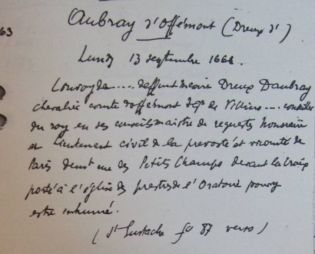 63
Aubray d'Offémont (Dreux d')
Lundy 13 septembre 1666.
Convoy de.... deffunt messire Dreux Daubray
chevalier comte d'offemont sgr de Villiers.... conseiller
du roy en ses conseils maistre de requestes honoraire
et Lieutenant civil de la prevosté et vicomté de
Paris demt rue des Petits Champs devant la Croix
porté à l'église des prestres de l'Oratoire pour y
estre inhumé.
(St Eustache fo 87 verso)